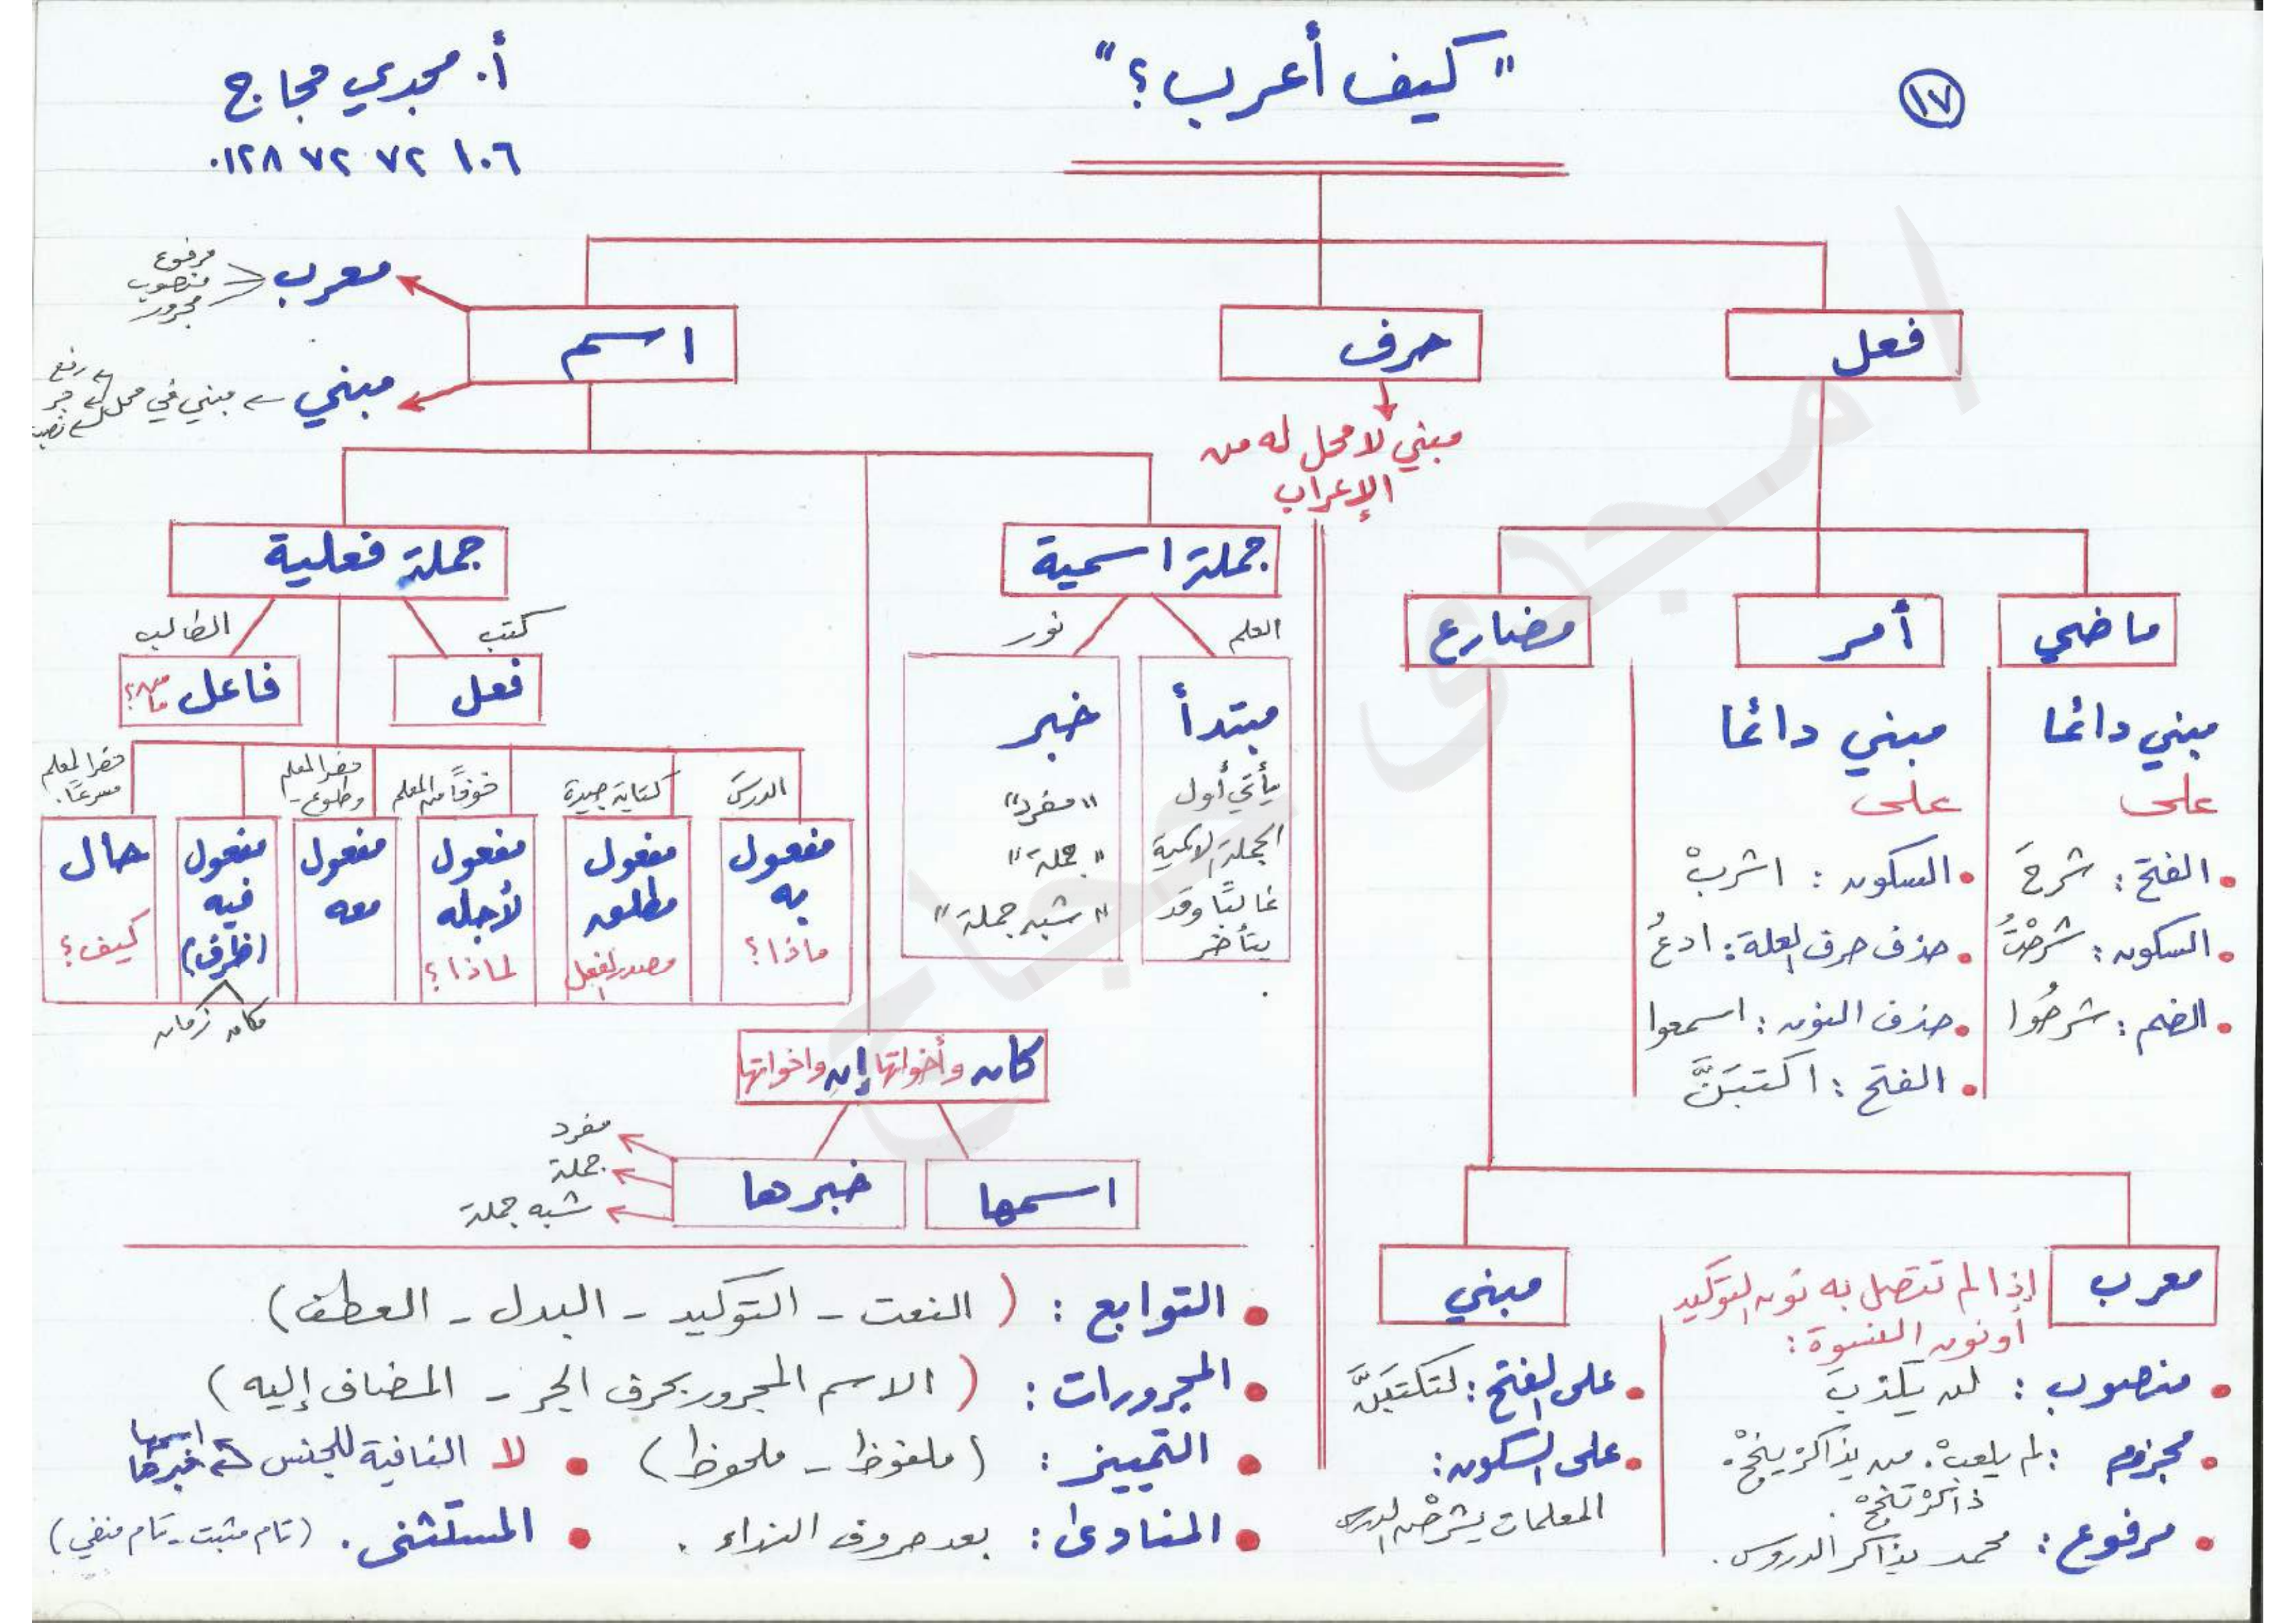 ١٧
"كيف أعرب؟"
أ. مجدي حجاج
٠١٢٨ ٧٢ ٧٢ ١٠٦
فعل
حرف
مبني لا محل له من
الإعراب
اسم
معرب
مرفوع
منصوب
مجرور
مبني ← مبني في محل
رفع
جر
نصب
ماضي
مبني دائمًا
على
• الفتح: شرحَ
• السكون: شرحْتُ
• الضم: شرحُوا
أمر
مبني دائمًا
على
• السكون: اشربْ
• حذف حرف العلة: ادعُ
• حذف النون: اسمعوا
• الفتح: اكتبَنَّ
مضارع
معرب
إذا لم تتصل به نون التوكيد
أو نون النسوة:
• منصوب: لن يكذبَ
• مجزوم: لم يلعبْ. من يذاكرْ ينجحْ.
ذاكرْ تنجحْ.
• مرفوع: محمد يذاكر الدروس.
مبني
• على الفتح: لتكتبَنَّ
• على السكون:
المعلمات يشرحْن الدرس
جملة اسمية
العلم
نور
مبتدأ
يأتي أول
الجملة الاسمية
غالبًا وقد
يتأخر
خبر
"مفرد"
"جملة"
"شبه جملة"
جملة فعلية
كتب
الطالب
فعل
فاعل من؟ ما؟
الدرسَ
مفعول
به
ماذا؟
كتابة جيدة
مفعول
مطلق
مصدر الفعل
خوفًا من المعلم
مفعول
لأجله
لماذا؟
حضر المعلم
وطلوع
مفعول
معه
مفعول
فيه
(ظرف)
مكان زمان
حضر المعلم
مسرعًا.
حال
كيف؟
كان وأخواتها إن وأخواتها
اسمها
خبرها
مفرد
جملة
شبه جملة
• التوابع: (النعت - التوكيد - البدل - العطف)
• المجرورات: (الاسم المجرور بحرف الجر - المضاف إليه)
• التمييز: (ملفوظ - ملحوظ)
• لا النافية للجنس
اسمها
خبرها
• المنادى: بعد حروف النداء.
• المستثنى. (تام مثبت - تام منفي)
أ/ مجدى حجاج